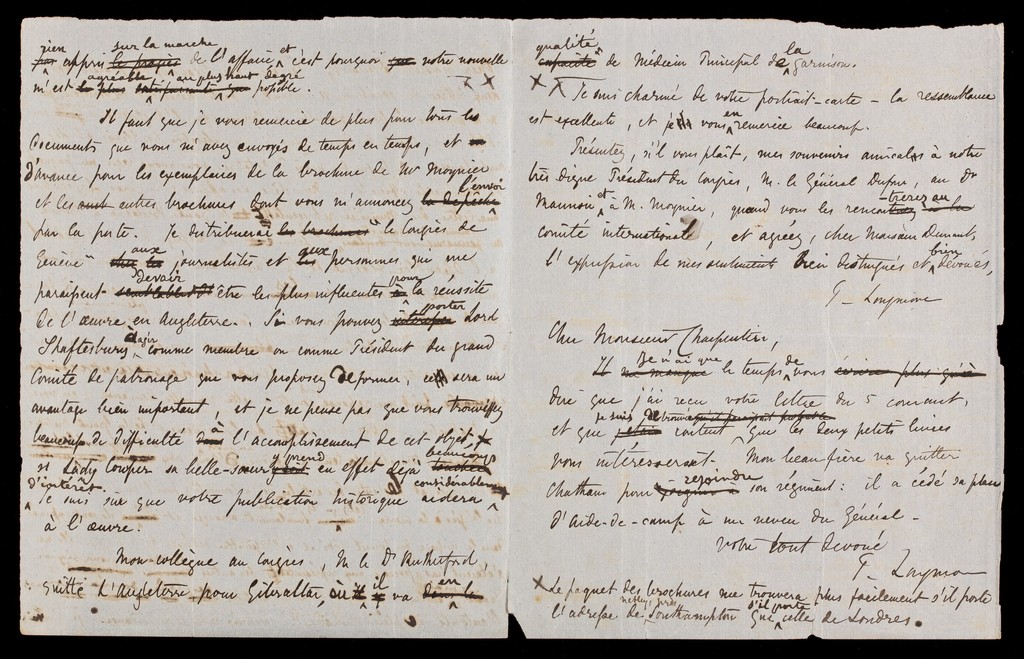 rien sur la marche et
pas appris le progrès de l'affaire c'est pourquoi que notre nouvelle
agréable, au plus haut degré
m'est le plus satisfaisante que possible.
Il faut que je vous remercie de plus pour tous les
documents que vous m'avez envoyés de temps en temps, et
d'avance pour les exemplaires de la brochure de Mr Moynier
l'envoi
et les autres brochures dont vous m'annoncez la dépêche
par la poste. Je distribuerai les brochures "le Congrès de
aux aux
Genève" journalistes et personnes qui me
devoir pour
paraissent être les plus influentes à la réussite
porter
de l'œuvre en Angleterre. Si vous pouvez Lord
d'agir
Shaftesbury comme membre ou comme Président du grand
Comité de patronage que vous proposez de former, ce sera un
avantage bien important, et je ne pense pas que vous trouviez
beaucoup de difficulté dans l'accomplissement de cet objet,
y prend beaucoup
si Lady Cowper sa belle-sœur en effet déjà touchée
d'intérêt. considérablement
Je suis sûr que votre publication historique aidera
à l'œuvre.
Mon collègue au Congrès, M. le Dr Rutherford,
il en
quitte L'Angleterre pour Gibraltar, où va dans la
qualité la
capacité de Médecin Principal de garnison.
Je suis charmé de votre portrait-carte – la ressemblance
en
est excellente, et je vous remercie beaucoup.
Présentez, s'il vous plaît, mes souvenirs amicales à notre
très digne Président du Congrès, M. le Général Dufour, au Dr
et trerez au
Maunoir à M. Moynier, quand vous les rencontrez
comité international, et agréez, cher Monsieur Dunant,
bien
l'expression de mes sentiments bien distingués et dévoués,
T. Longmore
Cher Monsieur Charpentier,
Je n'ai que de
Il me manque le temps vous écrire plus qu'à
dire que j'ai reçu votre lettre du 5 courant,
je suis de trouver
et que content que les deux petits livres
vous intéresseront. Mon beau-frère va quitter
rejoindre
Chatham pour son regiment: il a cédé sa place
d'Aide-de-camp à un neveu du Général –
votre tout dévoué
T. Longmore
Le paquet des brochures me trouvera plus facilement s'il porte
s'il porte
l'adresse de Southampton que celle de Londres.